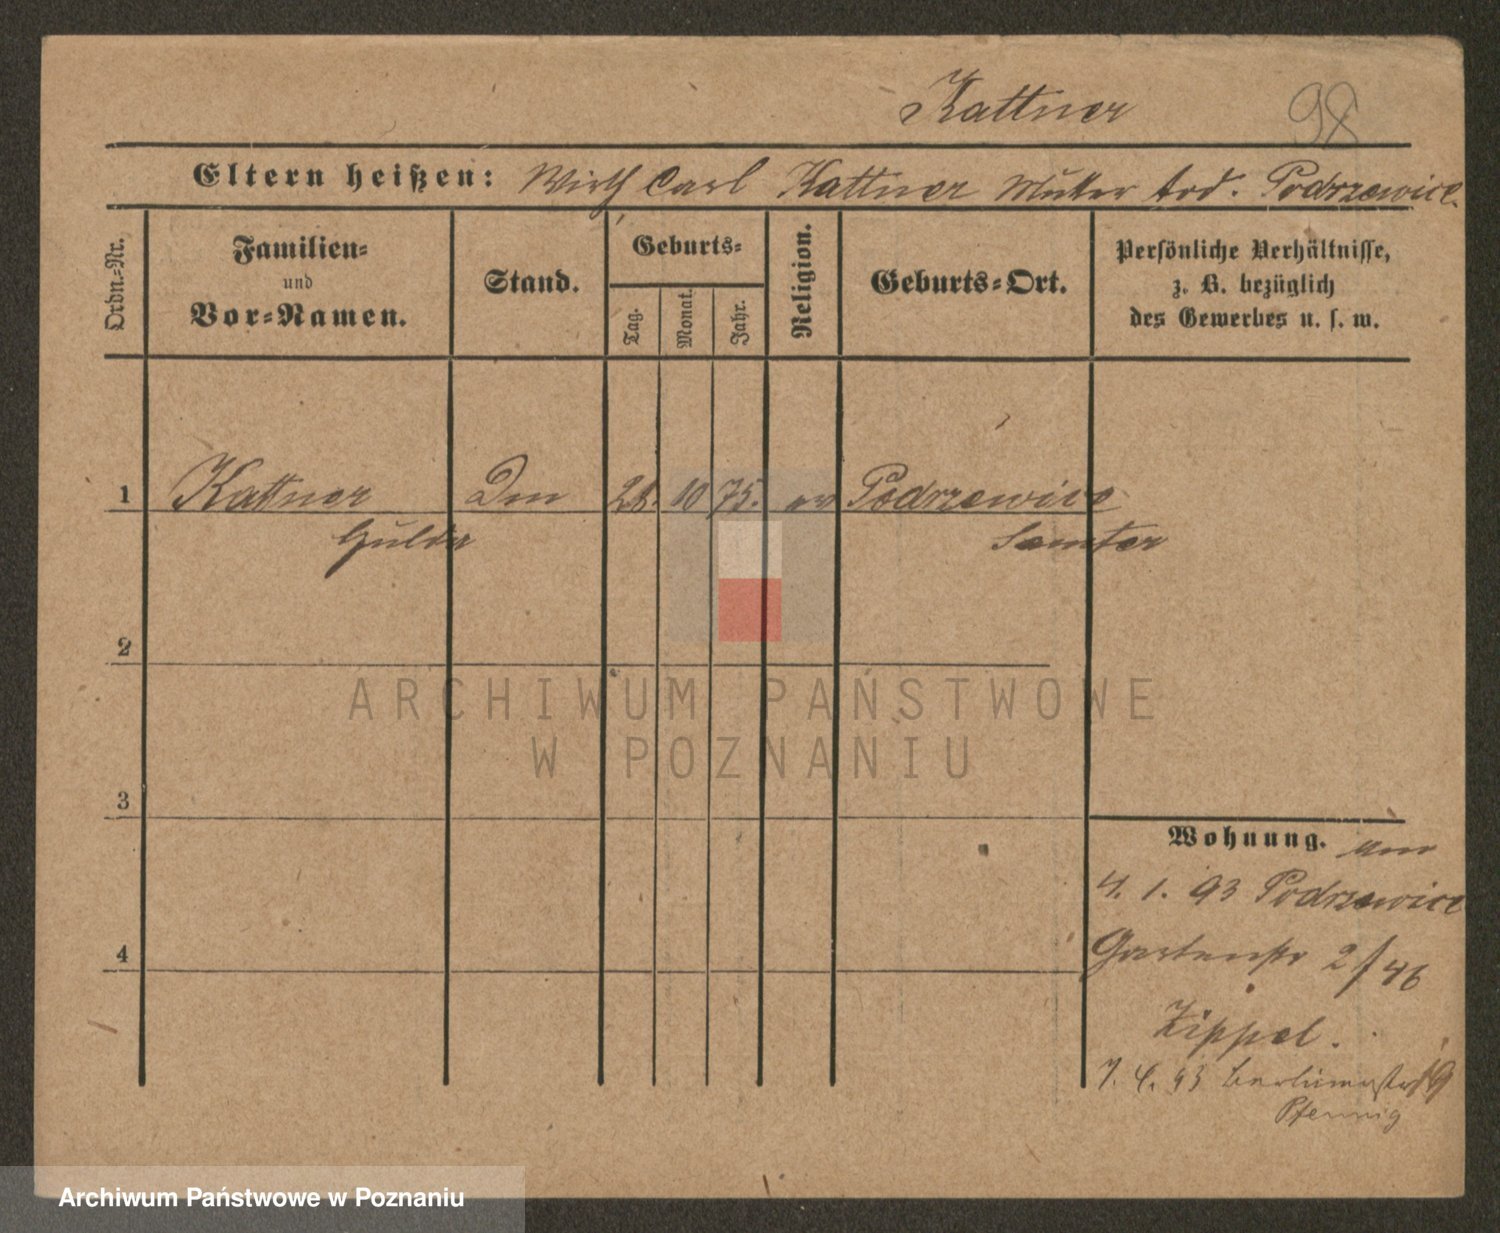 Kattner 98
Eltern heißen: Wirth Carl Kattner Mutter tod. Podrzewice.
Ordn.-Nr.
Familien-
und
Vor-Namen.
Stand.
Geburts-
Tag.
Monat.
Jahr.
Religion.
Geburts-Ort.
Persönliche Verhältnisse,
z. B. bezüglich
des Gewerbes u. s. w.
1 Kattner 28. 10 75. ev Podrzewice
Hulda Samter
2
ARCHIWUM PAŃSTWOWE
W POZNANIU
3
Wohnung.
4. 1. 93 Podrzewice
4
Gartenstr 2/46
Zippel.
7. 4. 93 Berlinerstr 19
Pfennig
Archiwum Państwowe w Poznaniu